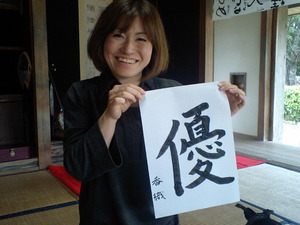 優
香織